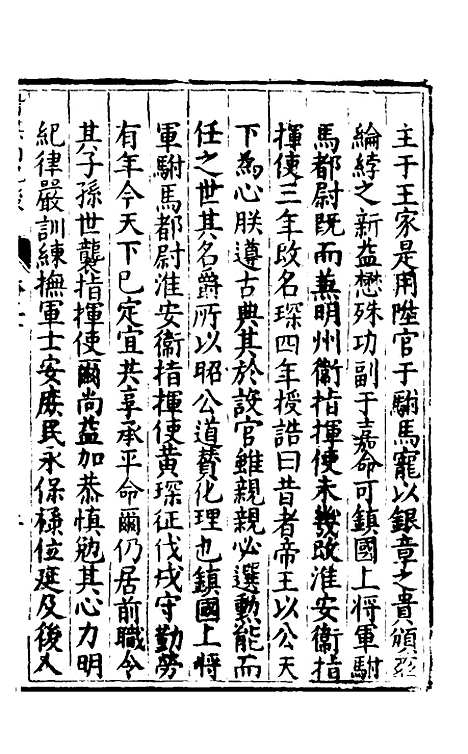 主于王家是用陞官于駙馬寵以銀章之貴頒
綸綍之新益懋殊功副于嘉命可鎮國上將軍駙
馬都尉既而兼明州衞指揮使未幾改淮安衞指
揮使三年改名琛四年授誥曰昔者帝王以公天
下為心朕遵古典其於設官雖親親必選勲能而
任之世其名爵所以昭公道賛化理也鎮國上將
軍駙馬都尉淮安衞指揮使黄琛征伐戍守勤勞
有年今天下已定宜共享承平命爾仍居前職令
其子孫世襲指揮使爾尚益加恭慎勉其心力明
紀律嚴訓練撫軍士安庻民永保祿位延及後人